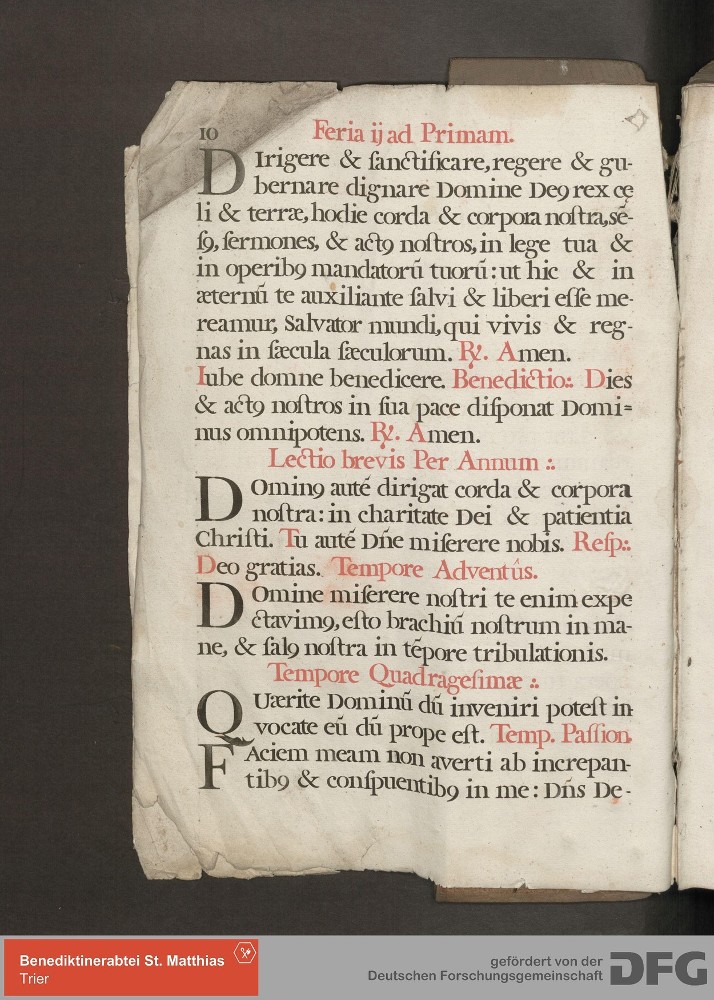 10 Feria ij ad Primam.
DIrigere & ſanctificare, regere & gu-
bernare dignare Domine Deꝯ rex cę
li & terræ, hodie corda & corpora noſtra, sē-
ſꝯ, ſermones, & actꝯ noſtros, in lege tua &
in operibꝯ mandatorū tuorū: ut hic & in
æternū te auxiliante ſalvi & liberi eſſe me-
reamur, Salvator mundi, qui vivis & reg-
nas in ſæcula ſæculorum. ℟. Amen.
Iube domne benedicere. Benedictio:. Dies
& actꝯ noſtros in ſua pace diſponat Domi=
nus omnipotens. ℟. Amen.
Lectio brevis Per Annum :.
DOminꝯ auté dirigat corda & corpora
noſtra: in charitate Dei & patientia
Chriſti. Tu auté Dn̄e miſerere nobis. Reſp:.
Deo gratias. Tempore Adventûs.
DOmine miſerere noſtri te enim expe
ctavimꝯ, eſto brachiū noſtrum in ma-
ne, & ſalꝯ noſtra in tēpore tribulationis.
Tempore Quadrageſimæ :.
QUærite Dominū dū inveniri poteſt in-
vocate eū dū prope eſt. Temp. Paſſion.
FAciem meam non averti ab increpan-
tibꝯ & conſpuentibꝯ in me: Dn̄s De-
Benediktinerabtei St. Matthias
Trier
gefördert von der
Deutschen Forschungsgemeinschaft
DFG